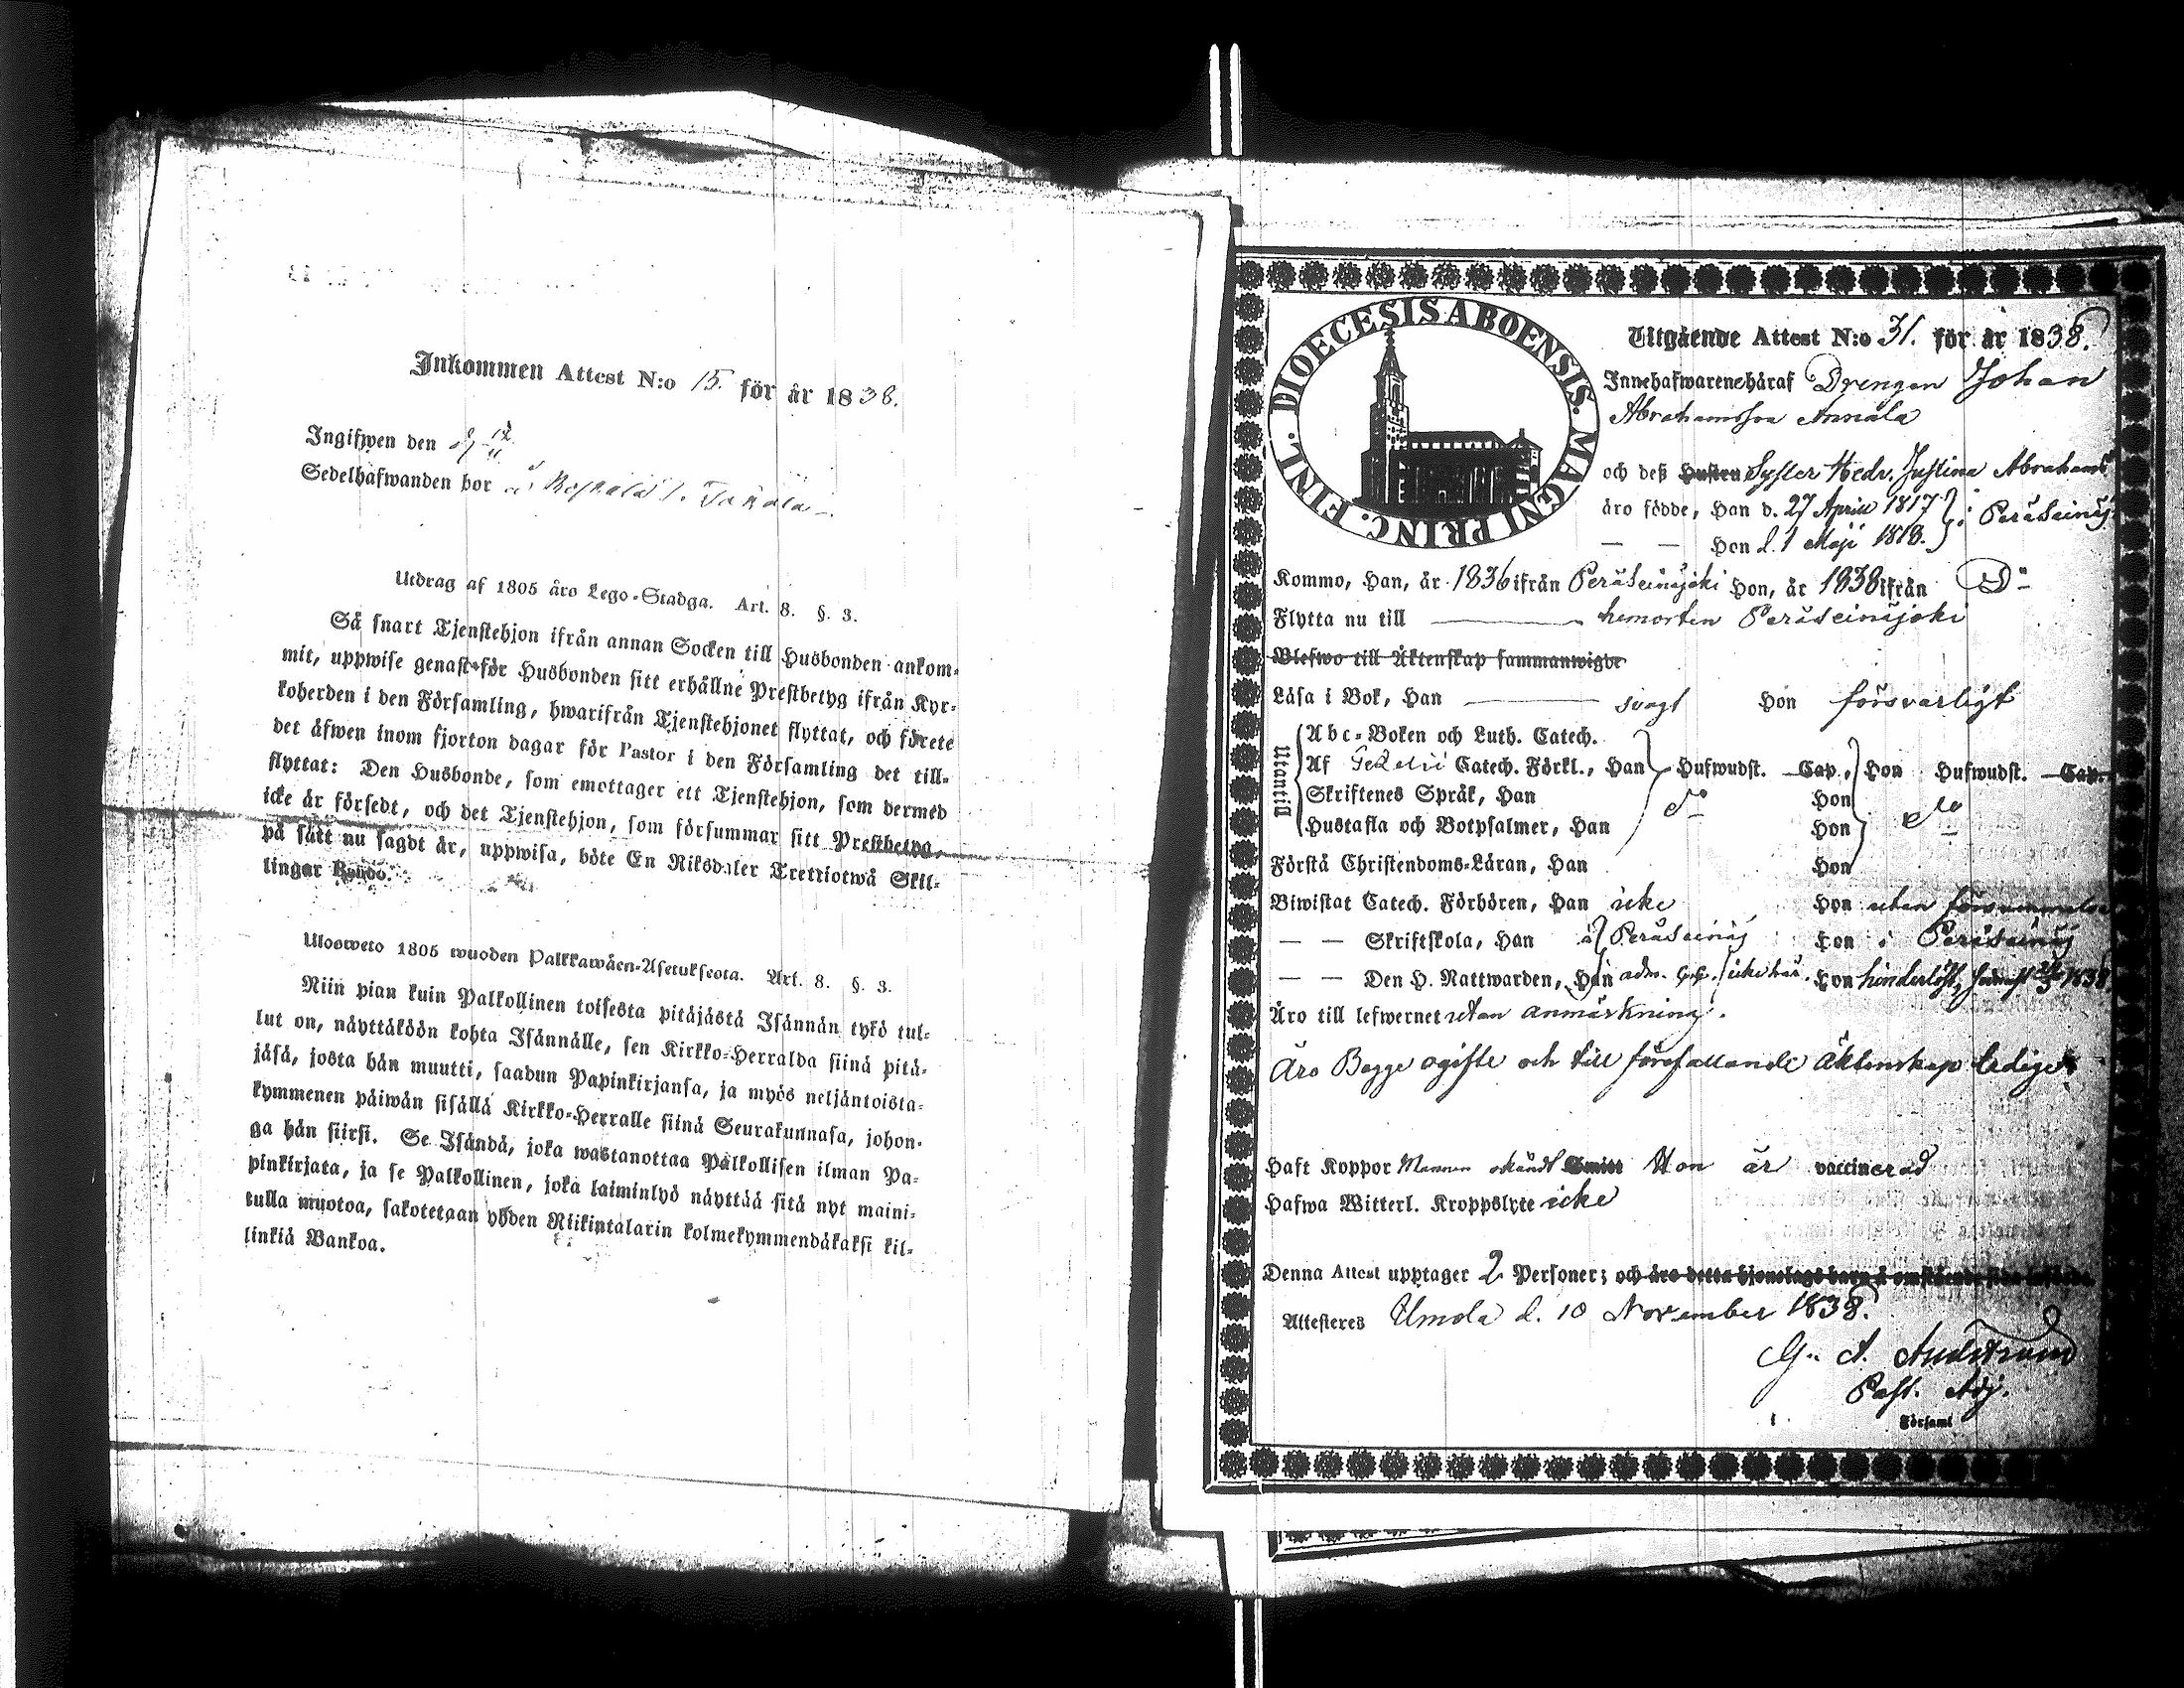 Inkommen Attest N:o 15. för år 1838.
Ingifwen den
Sedelhafwanden bor
Utdrag af 1805 års Lego-Stadga. Art. 8. §. 3.
Så snart Tjenstehjon ifrån annan Socken till Husbonden ankom-
mit, uppwise genast för Husbonden sitt erhållne Prestbetyg ifrån Kyr-
koherden i den Församling, hwarifrån Tjenstehjonet flyttat, och förete
det äfwen inom fjorton dagar för Pastor i den Församling det till-
flyttat: Den Husbonde, som emottager ett Tjenstehjon, som dermed
icke är försedt, och det Tjenstehjon, som försummar sitt Prestbetyg,
på sätt nu sagdt är, uppwisa, böte En Riksdaler Trettiotwå Skil-
lingar Banco.
Ulosweto 1805 wuoden Palkkawäen-Asetuksesta. Art. 8. §. 3.
Niin pian kuin Palkollinen toisesta pitäjästä Isännän tykö tul-
lut on, näyttäköön kohta Isännälle, sen Kirkko-Herralda siinä pitä-
jäsä, josta hän muutti, saadun Papinkirjansa, ja myös neljäntoista-
kymmenen päiwän sisällä Kirkko-Herralle siinä Seurakunnasa, johon-
ga hän siirsi. Se Isändä, joka wastanottaa Palkollisen ilman Pa-
pinkirjata, ja se Palkollinen, joka laiminlyö näyttää sitä nyt maini-
tulla muotoa, sakotetaan yhden Riikintalarin kolmekymmendäkaksi kil-
linkiä Bankoa.
DIOECESIS ABOENSIS. MAGNI PRINC. FINL.
Utgående Attest N:o 31. för år 1838.
Innehafwarene häraf Drengen Johan
Abrahamsson Annala
och deß Hustru Syster Hedv. Justina Abrahams
äro födde, Han d. 27 April 1817 } i Peräseinäj
— — Hon d. 1 Maji 1818.
Kommo, Han, år 1836 ifrån Peräseinäjoki Hon, år 1838 ifrån Do
Flytta nu till — hemorten Peräseinäjoki
Blefwo till Äktenskap sammanwigde
Läsa i Bok, Han — svagt Hon försvarligt
Utantill
Abc-Boken och Luth. Catech.
Af Gezelii Catech. Förkl., Han Hufwudst. Cap., Hon Hufwudst. Cap.
Skriftenes Språk, Han do Hon do
Hustafla och Botpsalmer, Han Hon
Förstå Christendoms-Läran, Han Hon
Biwistat Catech. Förhören, Han icke Hon utan försummelse
— — Skriftskola, Han i Peräseinäj Hon i Peräseinäj
— — Den H. Nattwarden, Han adm. icke här. Hon 1838
Äro till lefwernet utan anmärkning.
Äro Begge ogifte och till förefallande äktenskap ledige
Haft Koppor Mannen okändt Smitt Hon är vaccinerad
Hafwa Witterl. Kroppslyte icke
Denna Attest upptager 2 Personer; och äro detta hjonelags barn å omstående sida
Attesteres Umola d. 10 November 1838.
G. A.
Past. Adj.
Församl